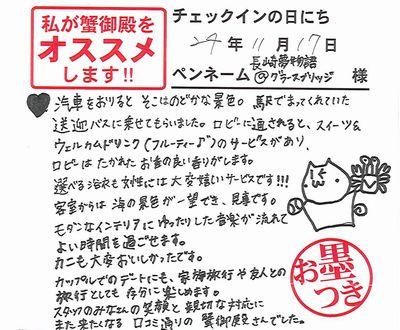 私が蟹御殿を
オススメ
します!!
チェックインの日にち
29年 11月 17日
ペンネーム 長崎夢物語@グラスブリッジ 様
汽車をおりると そこはのどかな景色。駅でまってくれていた
送迎バスに乗せてもらいました。ロビーに通されると、スイーツ&
ウェルカムドリンク(フルーティー♪)のサービスがあり、
ロビーは たかれた お香の良い香りがします。
選べる浴衣も女性には大変嬉しいサービスです!!!
客室からは 海の景色が一望でき、見事です。
モダンなインテリアに ゆったりした音楽が流れて
よい時間を過ごせます。
カニも大変おいしかったです。
カップルでのデートにも、家御旅行や友人との
旅行としても 存分に楽しめます。
スタッフのみなさんの笑顔と親切な対応に
また来たくなる 口コミ通りの 蟹御殿さんでした。
お墨
つき